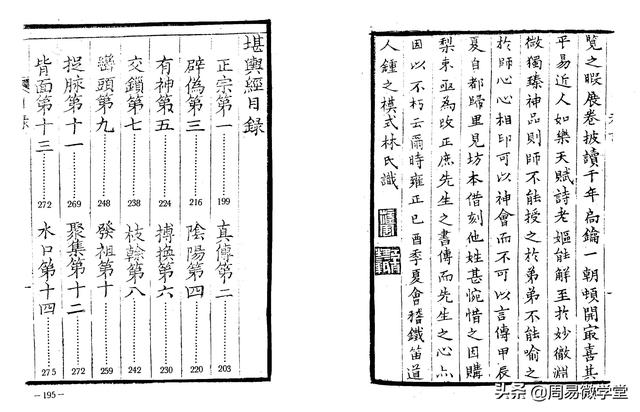 覽之暇展卷披讀千年扃鑰一朝頓開寂喜其
平易近人如樂天賦詩老嫗能解至於妙微淵
微獨臻神品則師不能授之於弟弟不能喻之
於師心心相印可以神會而不可以言傳甲辰
夏自都歸里見坊本借刻他姓甚惋惜之因購
梨棗亟為改正庶先生之書傳而先生之心亦
因以不朽云爾時雍正己酉季夏會稽鐵笛道
人鍾之模式林氏識
堪輿經目錄
正宗第一 199
真傳第二 203
辟偽第三 216
陰陽第四 220
有神第五 224
博換第六 230
交鎖第七 238
枝幹第八 242
巒頭第九 248
發祖第十 259
捉脉第十一 269
聚集第十二 272
背面第十三 272
水口第十四 275
—195—
头条 @周易微学堂